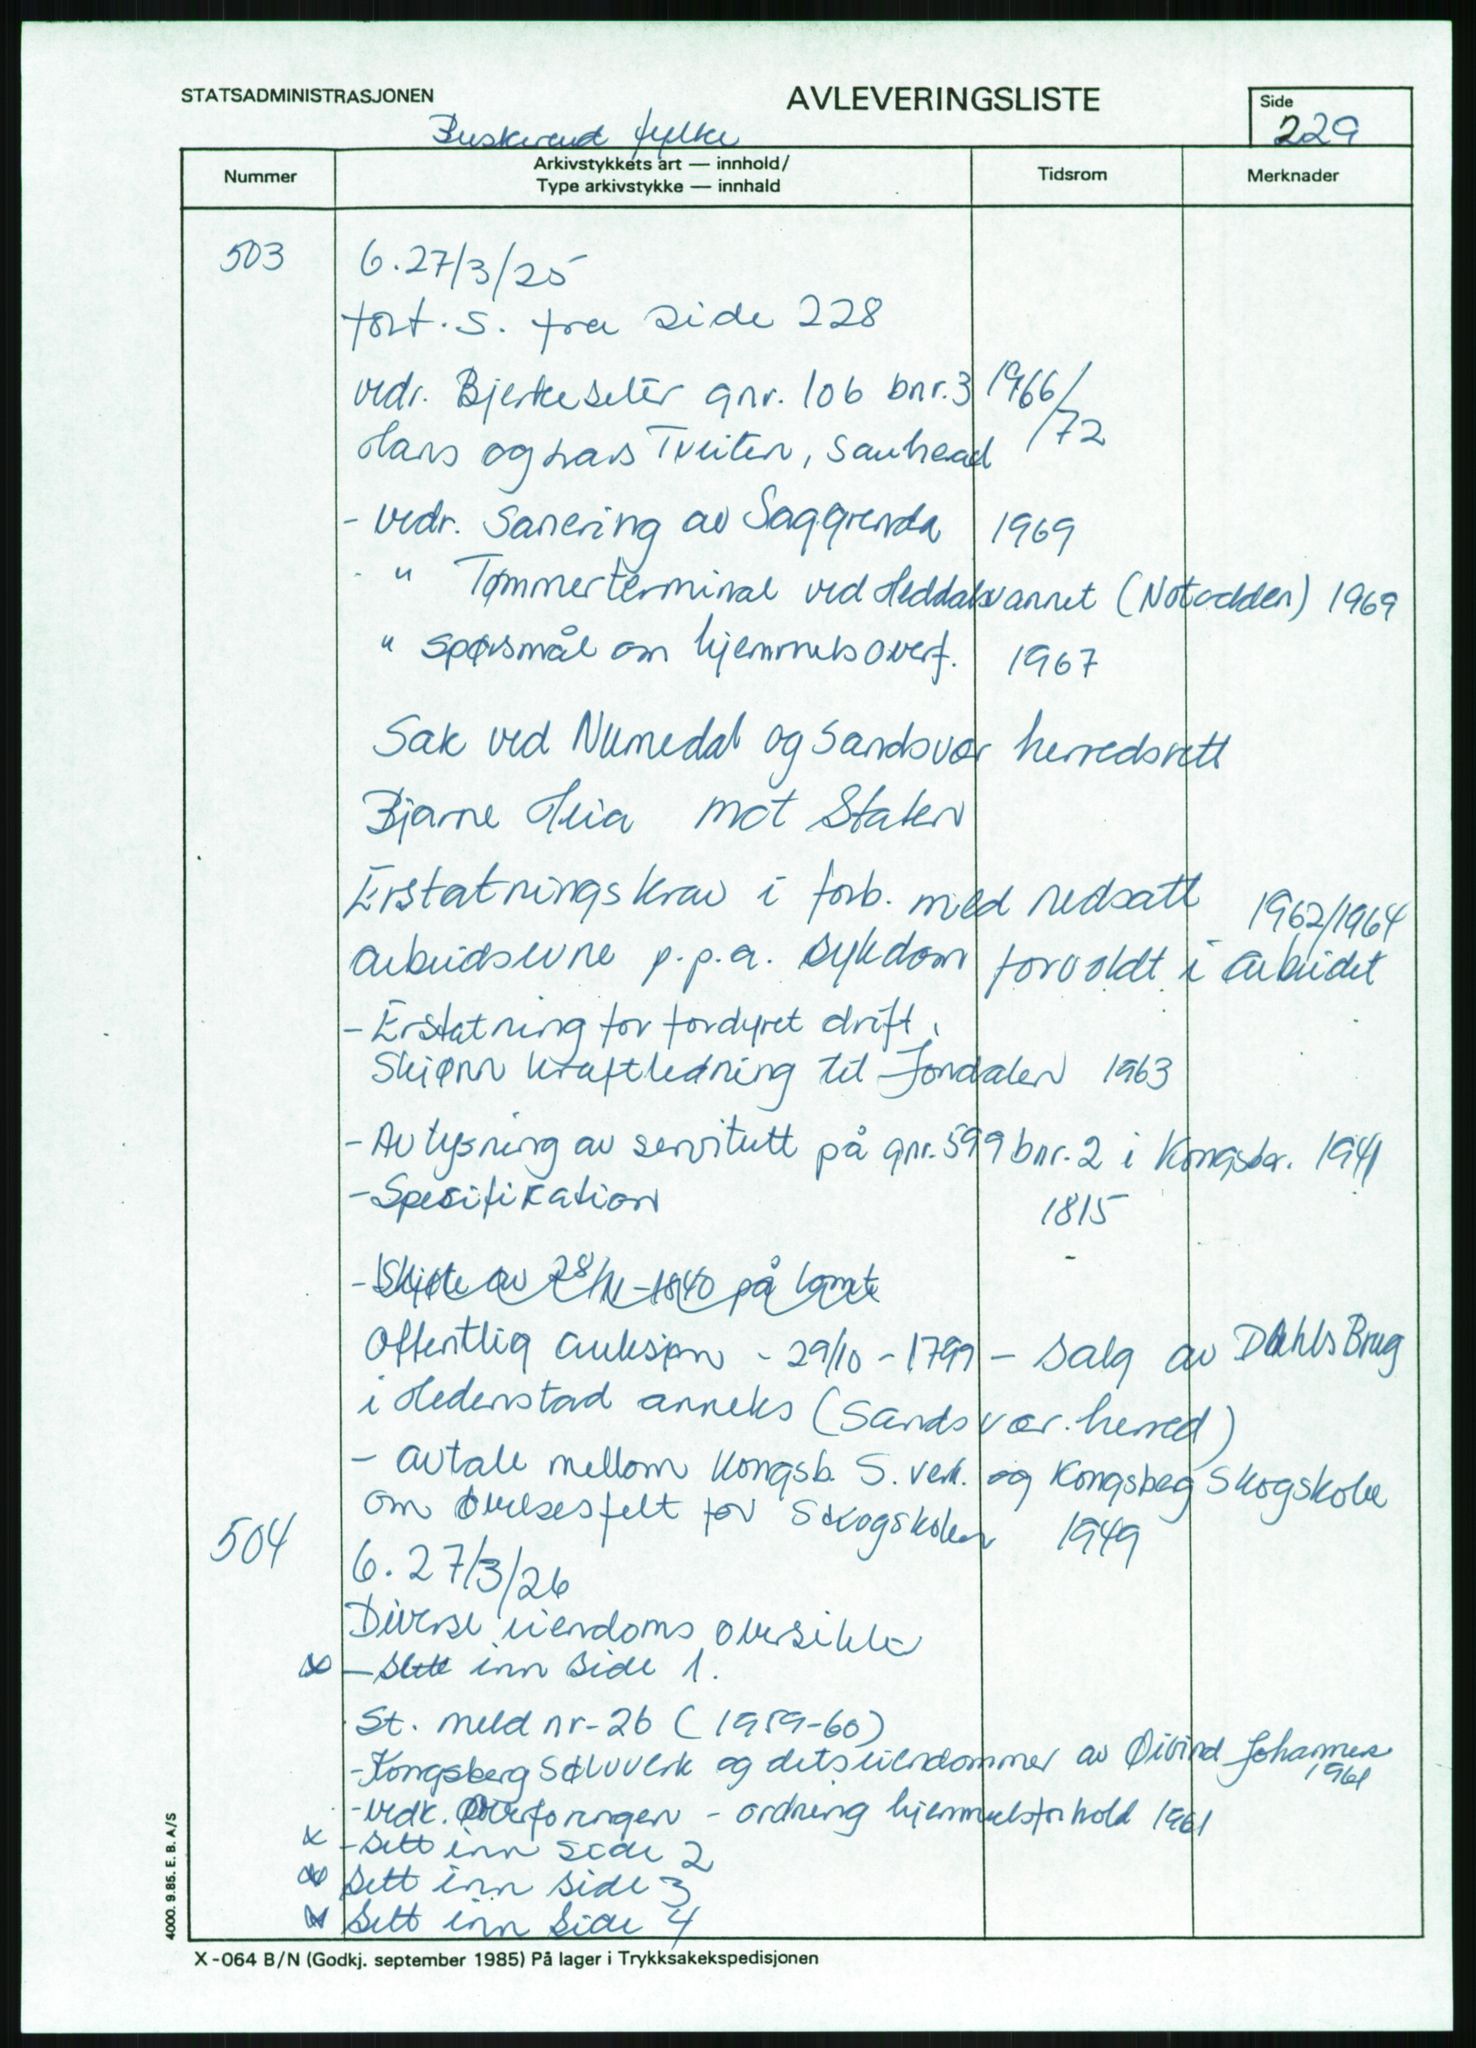 STATSADMINISTRASJONEN
AVLEVERINGSLISTE
Side
229
Buskerud fylke
Nummer
Arkivstykkets art — innhold/
Type arkivstykke — innhald
Tidsrom
Merknader
503
6.27/3/25
fort. s. fra side 228
vedr. Bjerkeseter gnr. 106 bnr. 3 1966/72
Hans og Lars Tveiten, Sauherad
- vedr. Sanering av Saggrenda 1969
- " Tømmerterminal ved Heddalsvannet (Notodden) 1969
" spørsmål om hjemmelsoverf. 1967
Sak ved Numedal og Sandsvær herredsrett
Bjarne Heia mot Staten
Erstatningskrav i forb. med nedsatt 1962/1964
arbeidsevne p.p.a. sykdom forvoldt i arbeidet
- Erstatning for fordyret drift,
Skjønn kraftledning til Jondalen 1963
- Avlysning av servitutt på gnr. 599 bnr. 2 i Kongsbr. 1941
- Spesifikation 1815
- Skjøte av 28/11-1840 på tomt
Offentlig auksjon - 29/10 - 1799 - Salg av Dahls Brug
i Hedenstad anneks (Sandsvær. herred)
- avtale mellom Kongsb. S. verk. og Kongsberg Skogskole
om øvelsesfelt for Skogskolen 1949
504
6.27/3/26
Diverse eiendoms oversikter
x - Sett inn side 1.
St. meld nr- 26 (1959-60)
- Kongsberg Sølvverk og dets eiendommer av Øivind Johannes 1961
- vedk. Overføringen - ordning hjemmelsforhold 1961
x - Sett inn side 2
x Sett inn side 3
x Sett inn side 4
4000. 9.85. E. B. A/S
X-064 B/N (Godkj. september 1985) På lager i Trykksakekspedisjonen